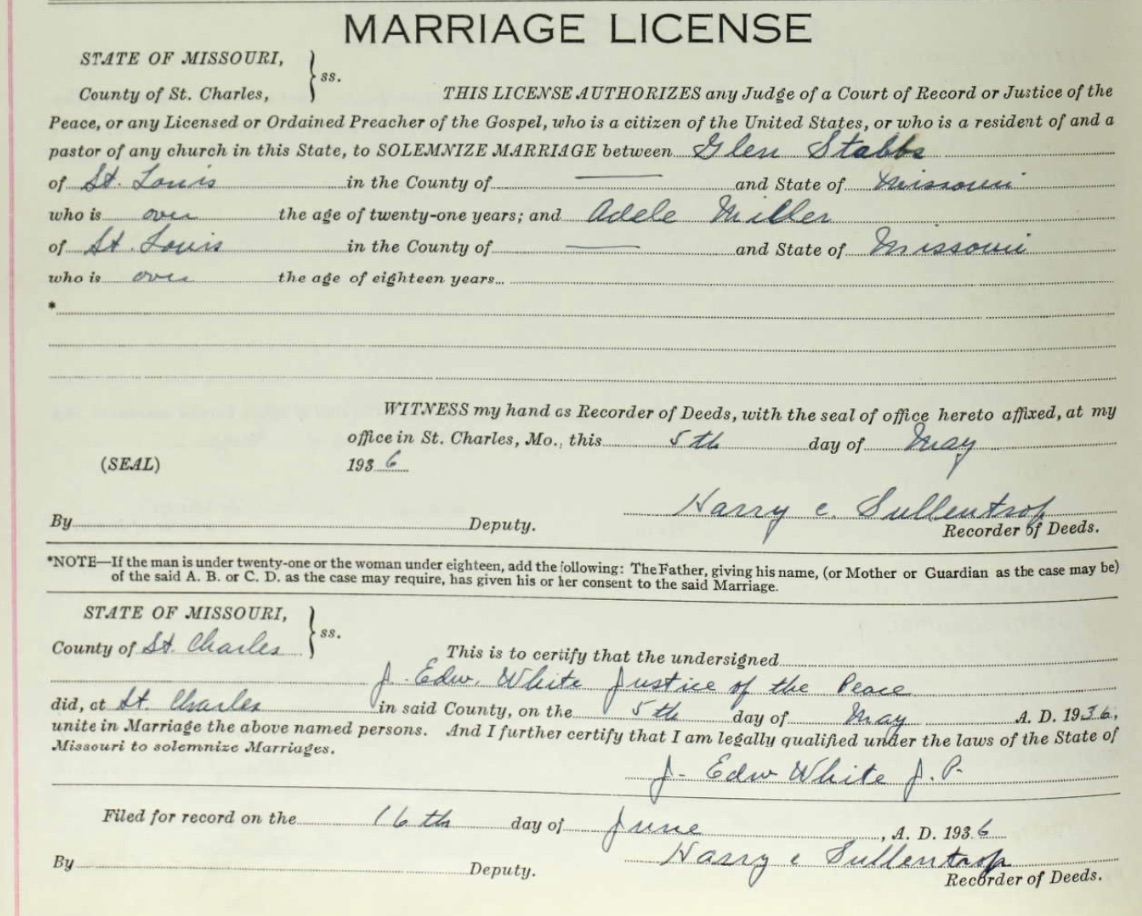 MARRIAGE LICENSE
STATE OF MISSOURI,
County of St. Charles, } ss.
THIS LICENSE AUTHORIZES any Judge of a Court of Record or Justice of the
Peace, or any Licensed or Ordained Preacher of the Gospel, who is a citizen of the United States, or who is a resident of and a
pastor of any church in this State, to SOLEMNIZE MARRIAGE between Glen Stabbs
of St. Louis in the County of — and State of Missouri
who is over the age of twenty-one years; and Adele Miller
of St. Louis in the County of — and State of Missouri
who is over the age of eighteen years
*
WITNESS my hand as Recorder of Deeds, with the seal of office hereto affixed, at my
office in St. Charles, Mo., this 5th day of May
(SEAL) 1936
Harry C. Sullentrop
By Deputy. Recorder of Deeds.
*NOTE—If the man is under twenty-one or the woman under eighteen, add the following: The Father, giving his name, (or Mother or Guardian as the case may be)
of the said A. B. or C. D. as the case may require, has given his or her consent to the said Marriage.
STATE OF MISSOURI,
County of St. Charles } ss.
This is to certify that the undersigned
J. Edw. White Justice of the Peace
did, at St. Charles in said County, on the 5th day of May A. D. 1936,
unite in Marriage the above named persons. And I further certify that I am legally qualified under the laws of the State of
Missouri to solemnize Marriages.
J. Edw White J. P.
Filed for record on the 16th day of June, A. D. 1936
Harry C Sullentrop
By Deputy. Recorder of Deeds.